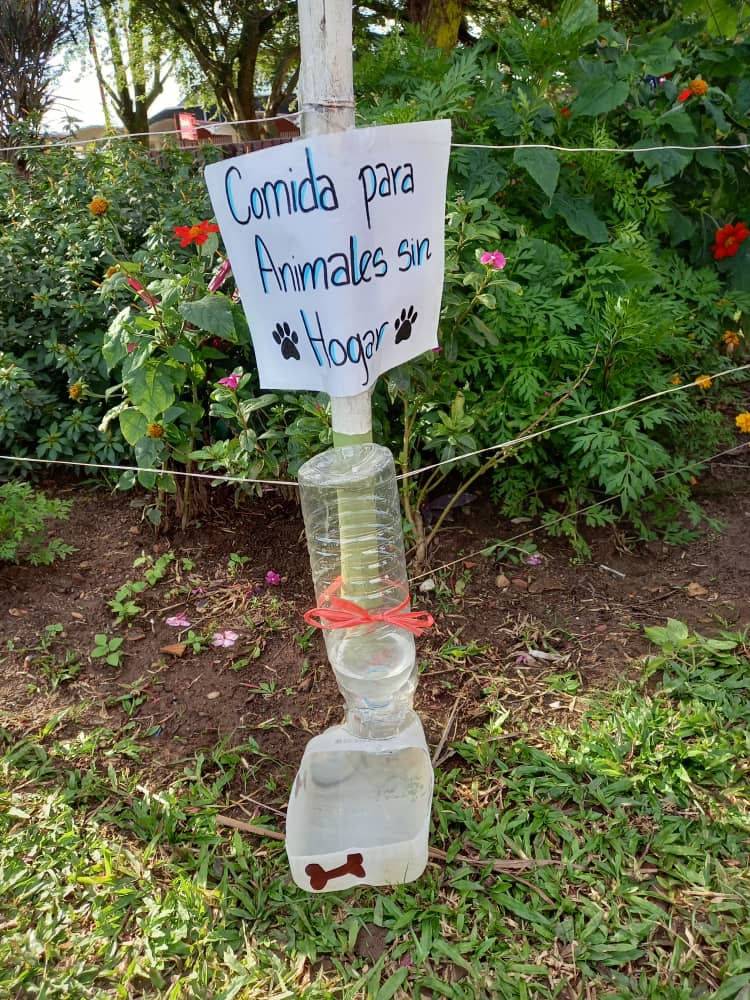 Comida para
Animales sin
Hogar